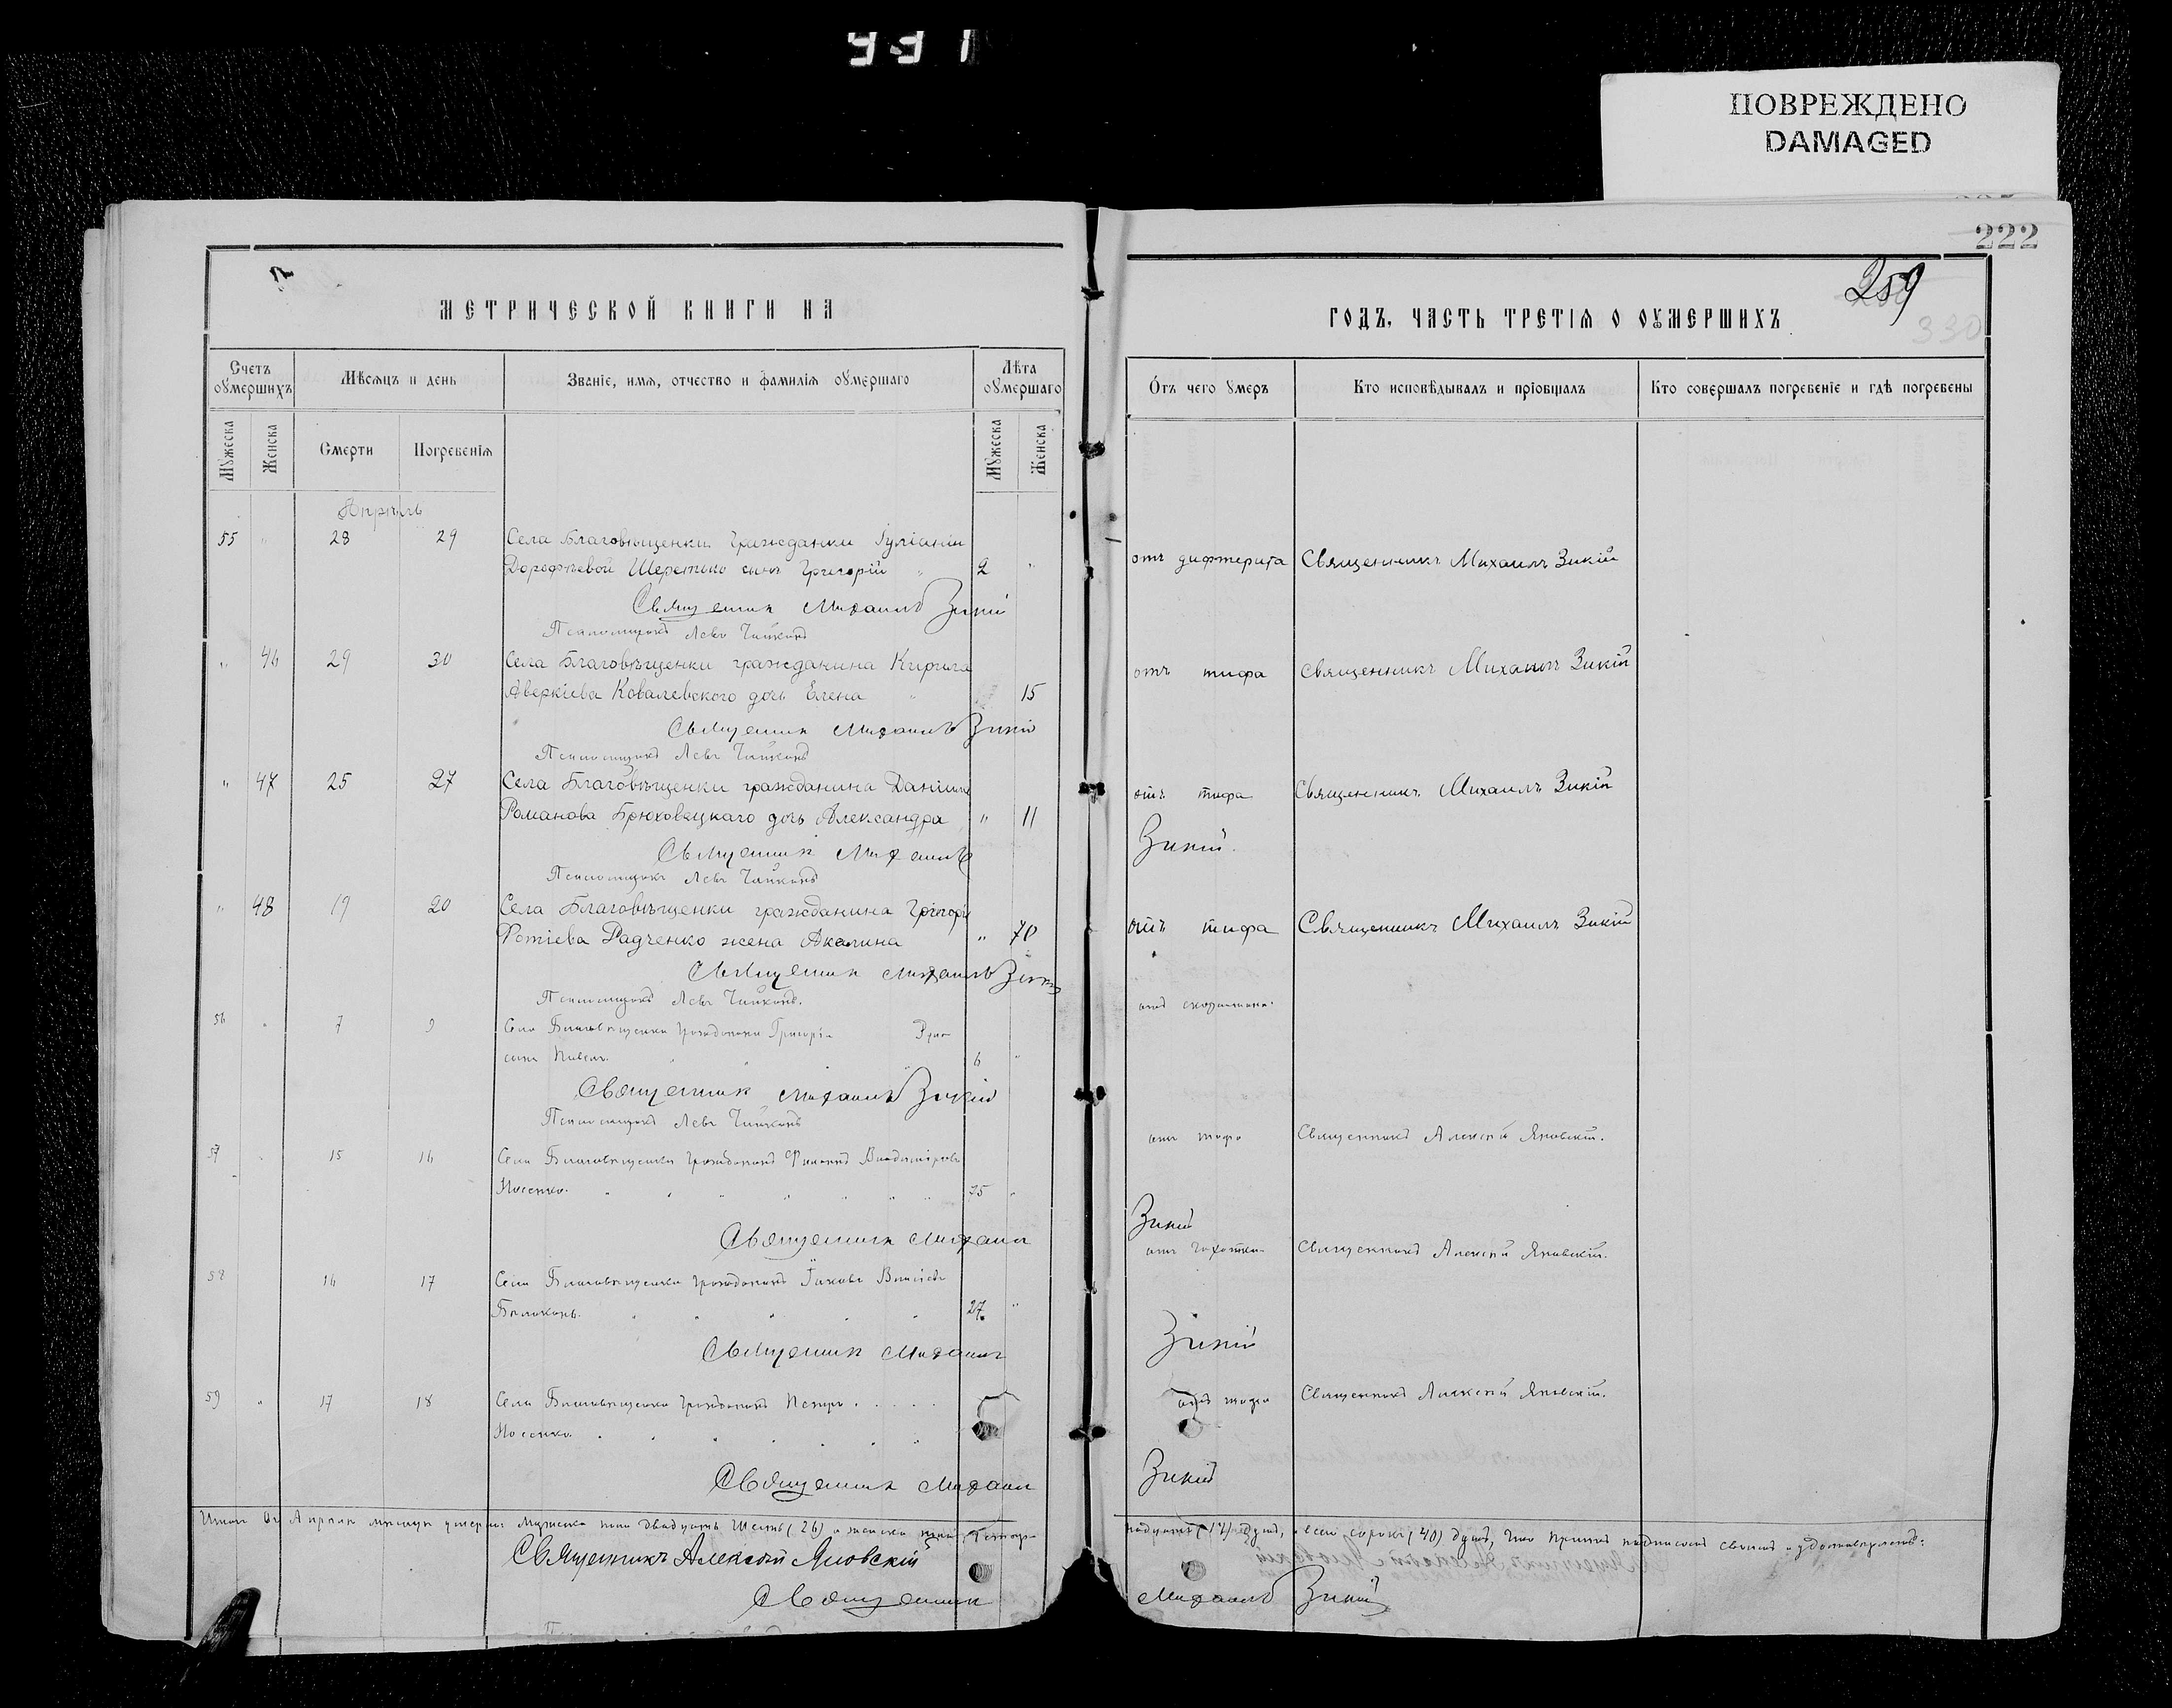 331
ПОВРЕЖДЕНО
DAMAGED
222
259
330
МЕТРИЧЕСКОЙ КНИГИ НА
ГОДЪ, ЧАСТЬ ТРЕТІѦ О ОУМЕРШИХЪ
Счетъ оумершихъ
Мѣсѧцъ и день
Званіе, имѧ, отчество и фамиліѧ оумершаго
Лѣта оумершаго
Отъ чего умеръ
Кто исповѣдывалъ и пріобщалъ
Кто совершалъ погребеніе и гдѣ погребены
Мужеска
Женска
Смерти
Погребеніѧ
Мужеска
Женска
Апрѣль
55 " 28 29 Села Благовѣщенки гражданки
Дорофѣевой сынъ Григорій " 2 "
отъ дифтерита Священникъ Михаилъ Зикій
Священник Михаилъ Зикій
Псаломщикъ Левъ
" 46 29 30 Села Благовѣщенки гражданина Кирила
Аверкіева Ковалевского дочь Елена " 15
отъ тифа Священникъ Михаилъ Зикій
Священник Михаилъ Зикій
Псаломщикъ Левъ
" 47 25 27 Села Благовѣщенки гражданина Даніила
Романова Брюховецкаго дочь Александра " 11
отъ тифа Священникъ Михаилъ Зикій
Священник Михаилъ Зикій.
Псаломщикъ Левъ
" 48 19 20 Села Благовѣщенки гражданина Григорія
Фотіева Радченко жена Акилина " 70
отъ тифа Священникъ Михаилъ Зикій
Священник Михаилъ Зикій
Псаломщикъ Левъ
56 " 7 9 Села Благовѣщенки гражданина Григорія
сынъ Павелъ. " " 6 "
отъ скарлатины.
Священник Михаилъ Зикій
Псаломщикъ Левъ
57 " 15 16 Села Благовѣщенки гражданинъ Филиппъ Владиміровъ
Носенко. 75 "
отъ тифа Священникъ Алексѣй Яновскій.
Священник Михаил Зикій
58 16 17 Села Благовѣщенки гражданинъ Іаковъ
Бѣлоконь. 27 "
отъ чахотки Священникъ Алексѣй Яновскій.
Священник Михаил Зикій
59 " 17 18 Села Благовѣщенки гражданинъ Петръ
Носенко.
отъ тифа Священникъ Алексѣй Яновскій.
Священник Михаил Зикій
Итого въ Апрѣлѣ мѣсяцѣ умерло: мужеска пола двадцать шесть (26) и женска пола четыр-
надцать (14) душъ, а всего сорокъ (40) душъ, что причтъ подписомъ своимъ и удостовѣряетъ:
Священникъ Алексѣй Яновскій
Священник Михаилъ Зикій